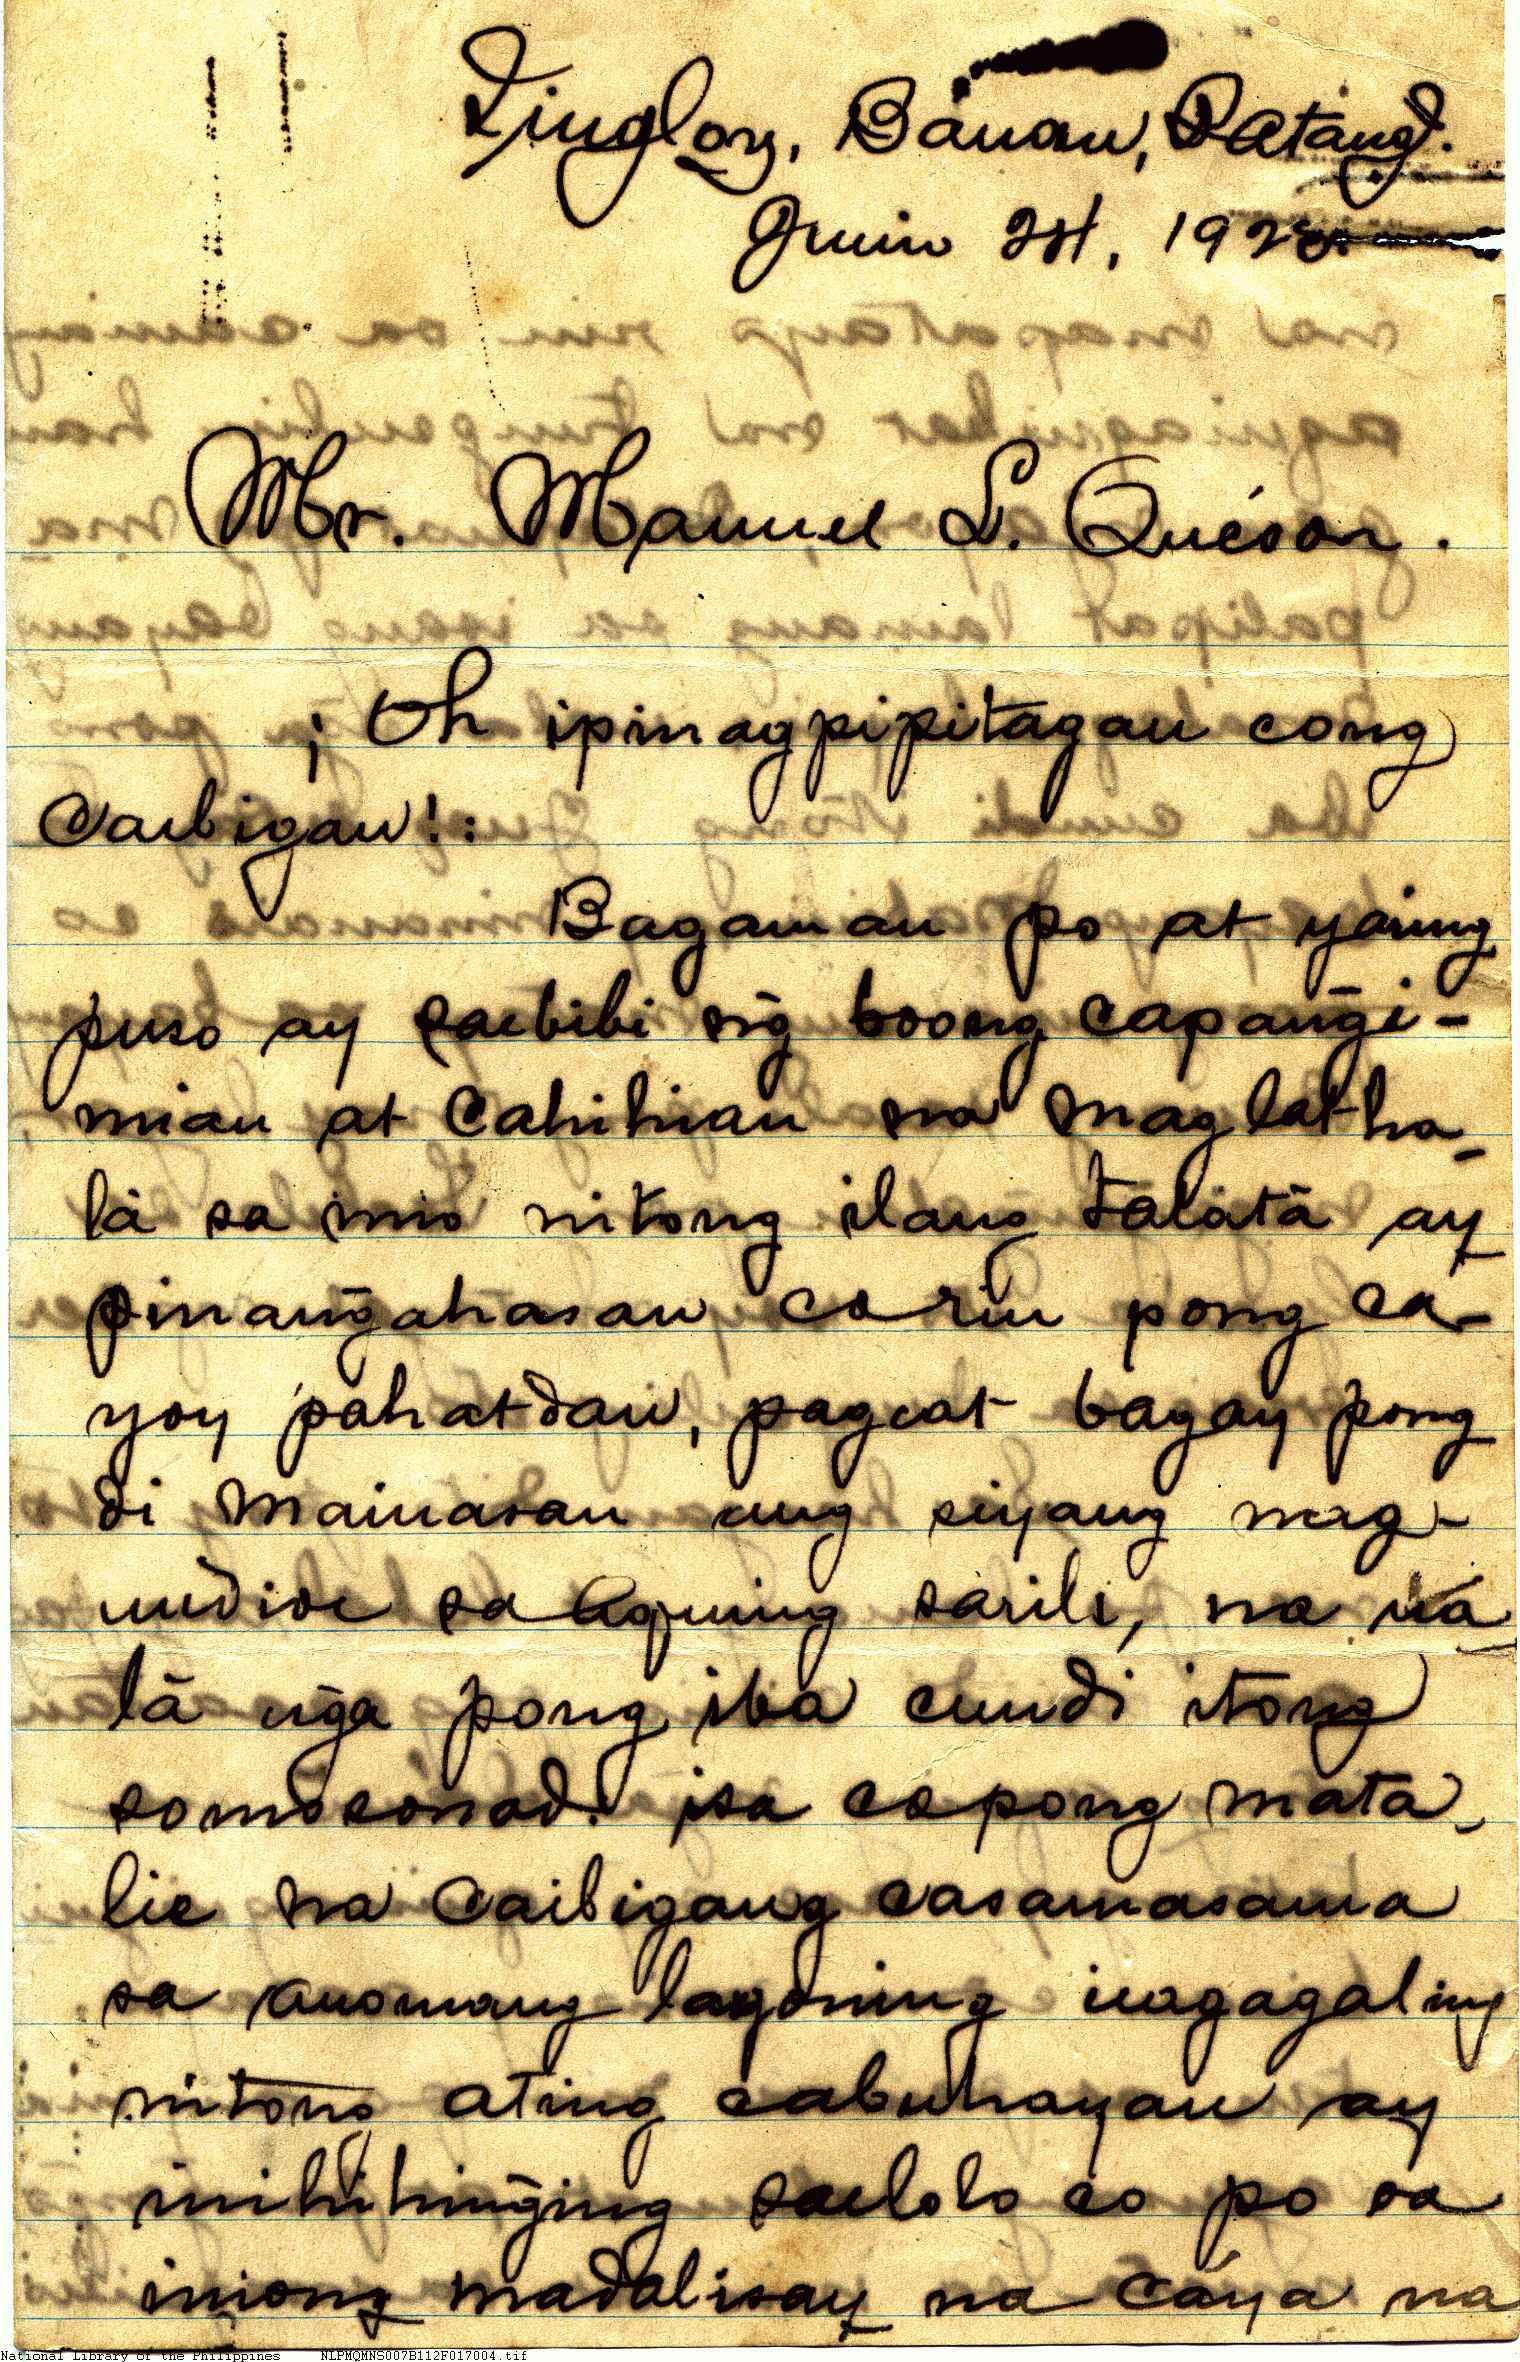 Tingloy, Bauan, Batang̃s.
Junio 21st, 1928.
Mr. Manuel L. Quéson.
¡Oh ipinagpipitagan cong
Caibigan!:
Bagaman po at yaring
puso ay saclibibi ng̃ boong capang̃i-
mian at cahihian na maglatha-
la sa inio nitong ilang talatà ay
pinang̃ahasan co rin pong ca-
yoy pahatdan, pagcat bagay pong
di mainasan ang siyang nag-
uudioc sa aquing sarili, na ua
lâ ng̃a pong iba cundi itong
somosónod: isa copong mata-
lic na Caibigang casamasama
sa anomang lagoning icagagaling
nitong ating cabuhayan ay
inihihing̃ing saclolo co po sa
iniong madalisay na cáya na
National Library of the Philippines NLPMQMNS007B112F017004.tif